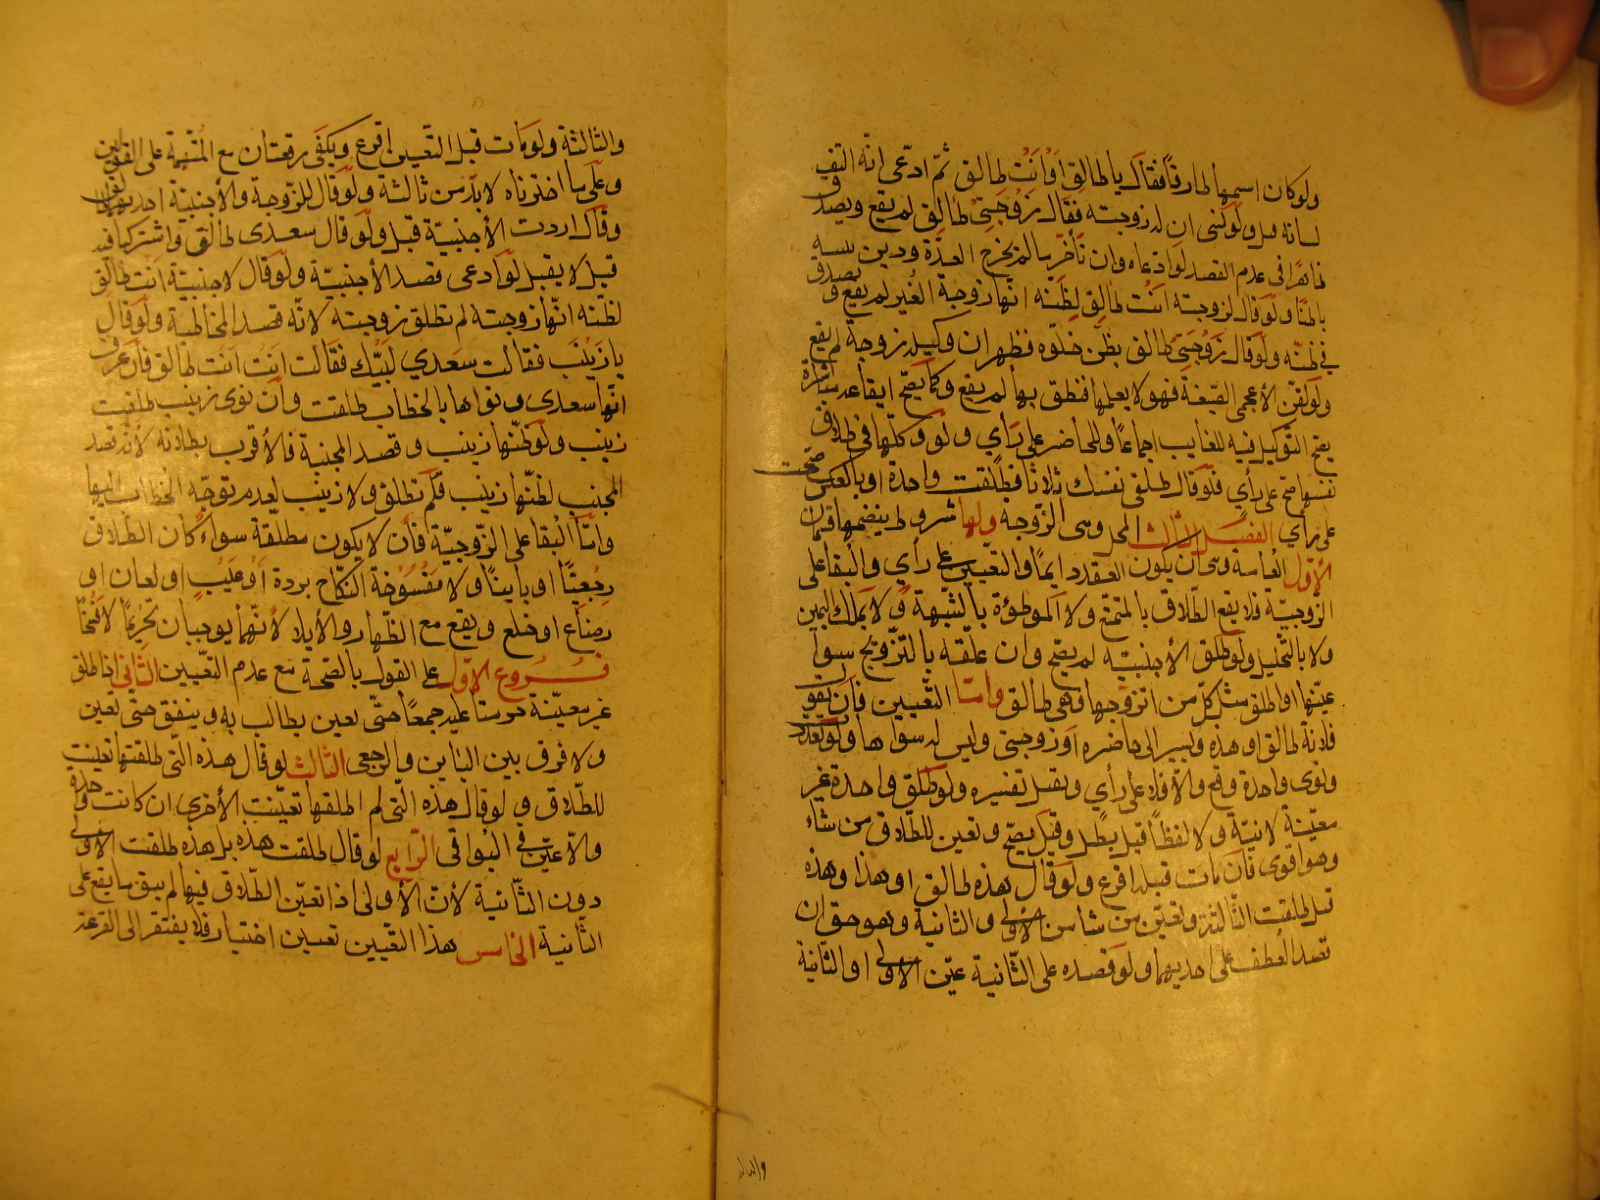 ولو كان اسمها طارقًا فقال يا طالق او انت طالق ثمّ ادعى انّه التف
لسانه قبل ولو نسى ان له زوجة فقال زوجتى طالق لم يقع ويصدق
ظاهرًا فى عدم القصد لو ادعاه وان تأخر ما لم تخرج العدّة ودين بنيته
باطنًا ولو قال لزوجته انت طالق لظنه انها زوجة الغير لم يقع ويصدق
فى ظنّه ولو قال زوجتى طالق بظن خلوّه فظهر ان وكيله زوجه لم يقع
ولو لقن الأعجمى الصّيغة فهو لا يعلمها فنطق بها لم يقع وكما يصحّ ايقاعه مباشرة
يصح التوكيل فيه للغايب اجماعًا وللحاضر على رأي ولو وكلها فى طلاق
نفسها صح على رأي فلو قال طلقى نفسك ثلاثًا فطلقت واحدة او بالعكس صحت
على رأي الفصل الثالث المحل وهى الزوجة ولها شروط ينضمها قسمان
الأول العامة وهى أن يكون العقد دايمًا والتعيين على رأي والبقا على
الزوجيّة فلا يقع الطّلاق بالمتمتع ولا الموطؤة بالشّبهة ولا بملك اليمين
ولا بالتحليل ولو طلق الأجنبيّة لم يصح وان علّقه بالتزويج سوا
عيّنها او اطلق مثل كلّ من اتزوجها فهى طالق وامّا التّعيين فان يقول
فلانة طالق او هذه ويشير الى حاضره او زوجتى وليس له سواها ولو تعدد
ونوى واحدة وقع والا فلا على رأي ويقبل تفسيره ولو طلق واحدة غير
معيّنة لا نيّة ولا لفظًا قيل بطل وقيل يصح وتعين للطّلاق من شاء
وهو اقوى فان مات قبله اقرع ولو قال هذه طالق او هذا وهذه
قيل طلقت الثالثة وتعين من شا من الأولى والثانية وهو حق ان
قصد العطف على احديهما ولو قصده على الثّانية عيّن الأولى او الثّانية
والثالثة ولو مات قبل التّعيين اقرع ويكفى رقعتان مع المبهمة على القولين
وعلى ما اخترناه لا بدّ من ثالثة ولو قال للزّوجة والأجنبيّة احديكما طالق
وقال اردت الأجنبيّة قبل ولو قال سعدى طالق واشتركا فيه
قيل لا يقبل لو ادعى قصد الأجنبيّة ولو قال لاجنبيّة انت طالق
لظنّه انّها زوجته لم تطلق زوجيته لانّه قصد المخاطبة ولو قال
يا زينب فقالت سعدي لبّيك فقالت انت انت طالق فان عرف
انّها سعدى ونواها بالخطاب طلقت وان نوى زينب طلقت
زينب ولو ظنّها زينب وقصد المجيبة فالأقرب بطلانه لأنه قصد
المجيب لظنّها زينب فلم تطلق ولا زينب لعدم توجّه الخطاب اليها
وامّا البقا على الزّوجيّة فأن لا يكون مطلّقة سواء كان الطّلاق
رجعيّا او باينا ولا مفسوخة النّكاح بردة او عيب او لعان او
رضاع او خلع ويقع مع الظّهار والأيلاء لأنّهما يوجبان تحريمًا لا فسخًا
فروع الاوّل على القول بالصّحة مع عدم التعّيين الثانى اذا طلق
غير معيّنة حرمتا عليه جمعًا حتّى يعين يطالب به وينفق حتى تعين
ولا فرق بين الباين والرجعى الثالث لو قال هذه التّى طلقتها تعينت
للطّلاق ولو قال هذه التّى لم اطلقها تعيّنت الأخرى ان كانت واحدة
والا عيّن فى البواقى الرّابع لو قال طلقت هذه بل هذه طلقت الأولى
دون الثّانية لأنّ الأولى اذا تعيّن الطّلاق فيها لم يبق ما يقع على
الثّانية الخامس هذا التّعيين تعيين اختيار فلا يفتقر الى القرعة